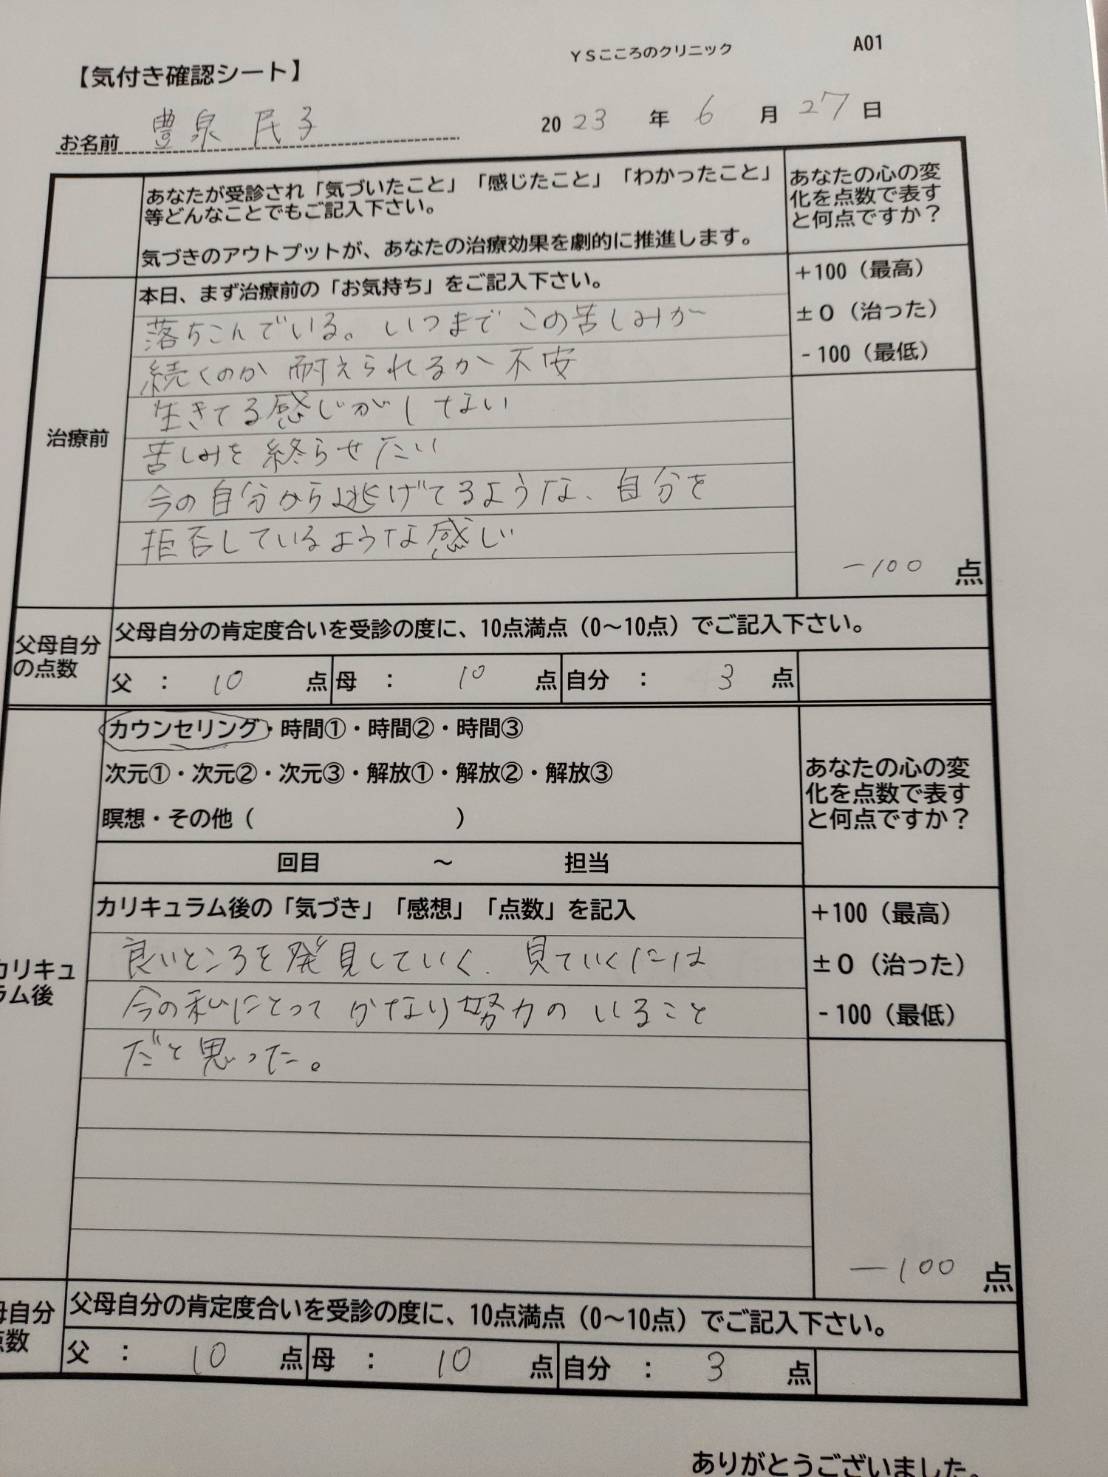 YSこころのクリニック
A01
【気付き確認シート】
お名前 豊泉 民子
2023 年 6 月 27 日
あなたが受診され「気づいたこと」「感じたこと」「わかったこと」
等どんなことでもご記入下さい。
気づきのアウトプットが、あなたの治療効果を劇的に推進します。
あなたの心の変
化を点数で表す
と何点ですか？
治療前
本日、まず治療前の「お気持ち」をご記入下さい。
落ちこんでいる。いつまでこの苦しみが
続くのか 耐えられるか不安
生きてる感じがしてない
苦しみを終らせたい
今の自分から逃げてるような、自分を
拒否しているような感じ
+100（最高）
±0（治った）
-100（最低）
-100 点
父母自分
の点数
父母自分の肯定度合いを受診の度に、10点満点（0〜10点）でご記入下さい。
父 ： 10 点 母 ： 10 点 自分 ： 3 点
カウンセリング・時間①・時間②・時間③
次元①・次元②・次元③・解放①・解放②・解放③
瞑想・その他（ ）
回目 〜 担当
あなたの心の変
化を点数で表す
と何点ですか？
カリキュ
ラム後
カリキュラム後の「気づき」「感想」「点数」を記入
良いところを発見していく、見ていくには
今の私にとって かなり努力の いること
だと思った。
+100（最高）
±0（治った）
-100（最低）
-100 点
母自分
点数
父母自分の肯定度合いを受診の度に、10点満点（0〜10点）でご記入下さい。
父 ： 10 点 母 ： 10 点 自分 ： 3 点
ありがとうございました。